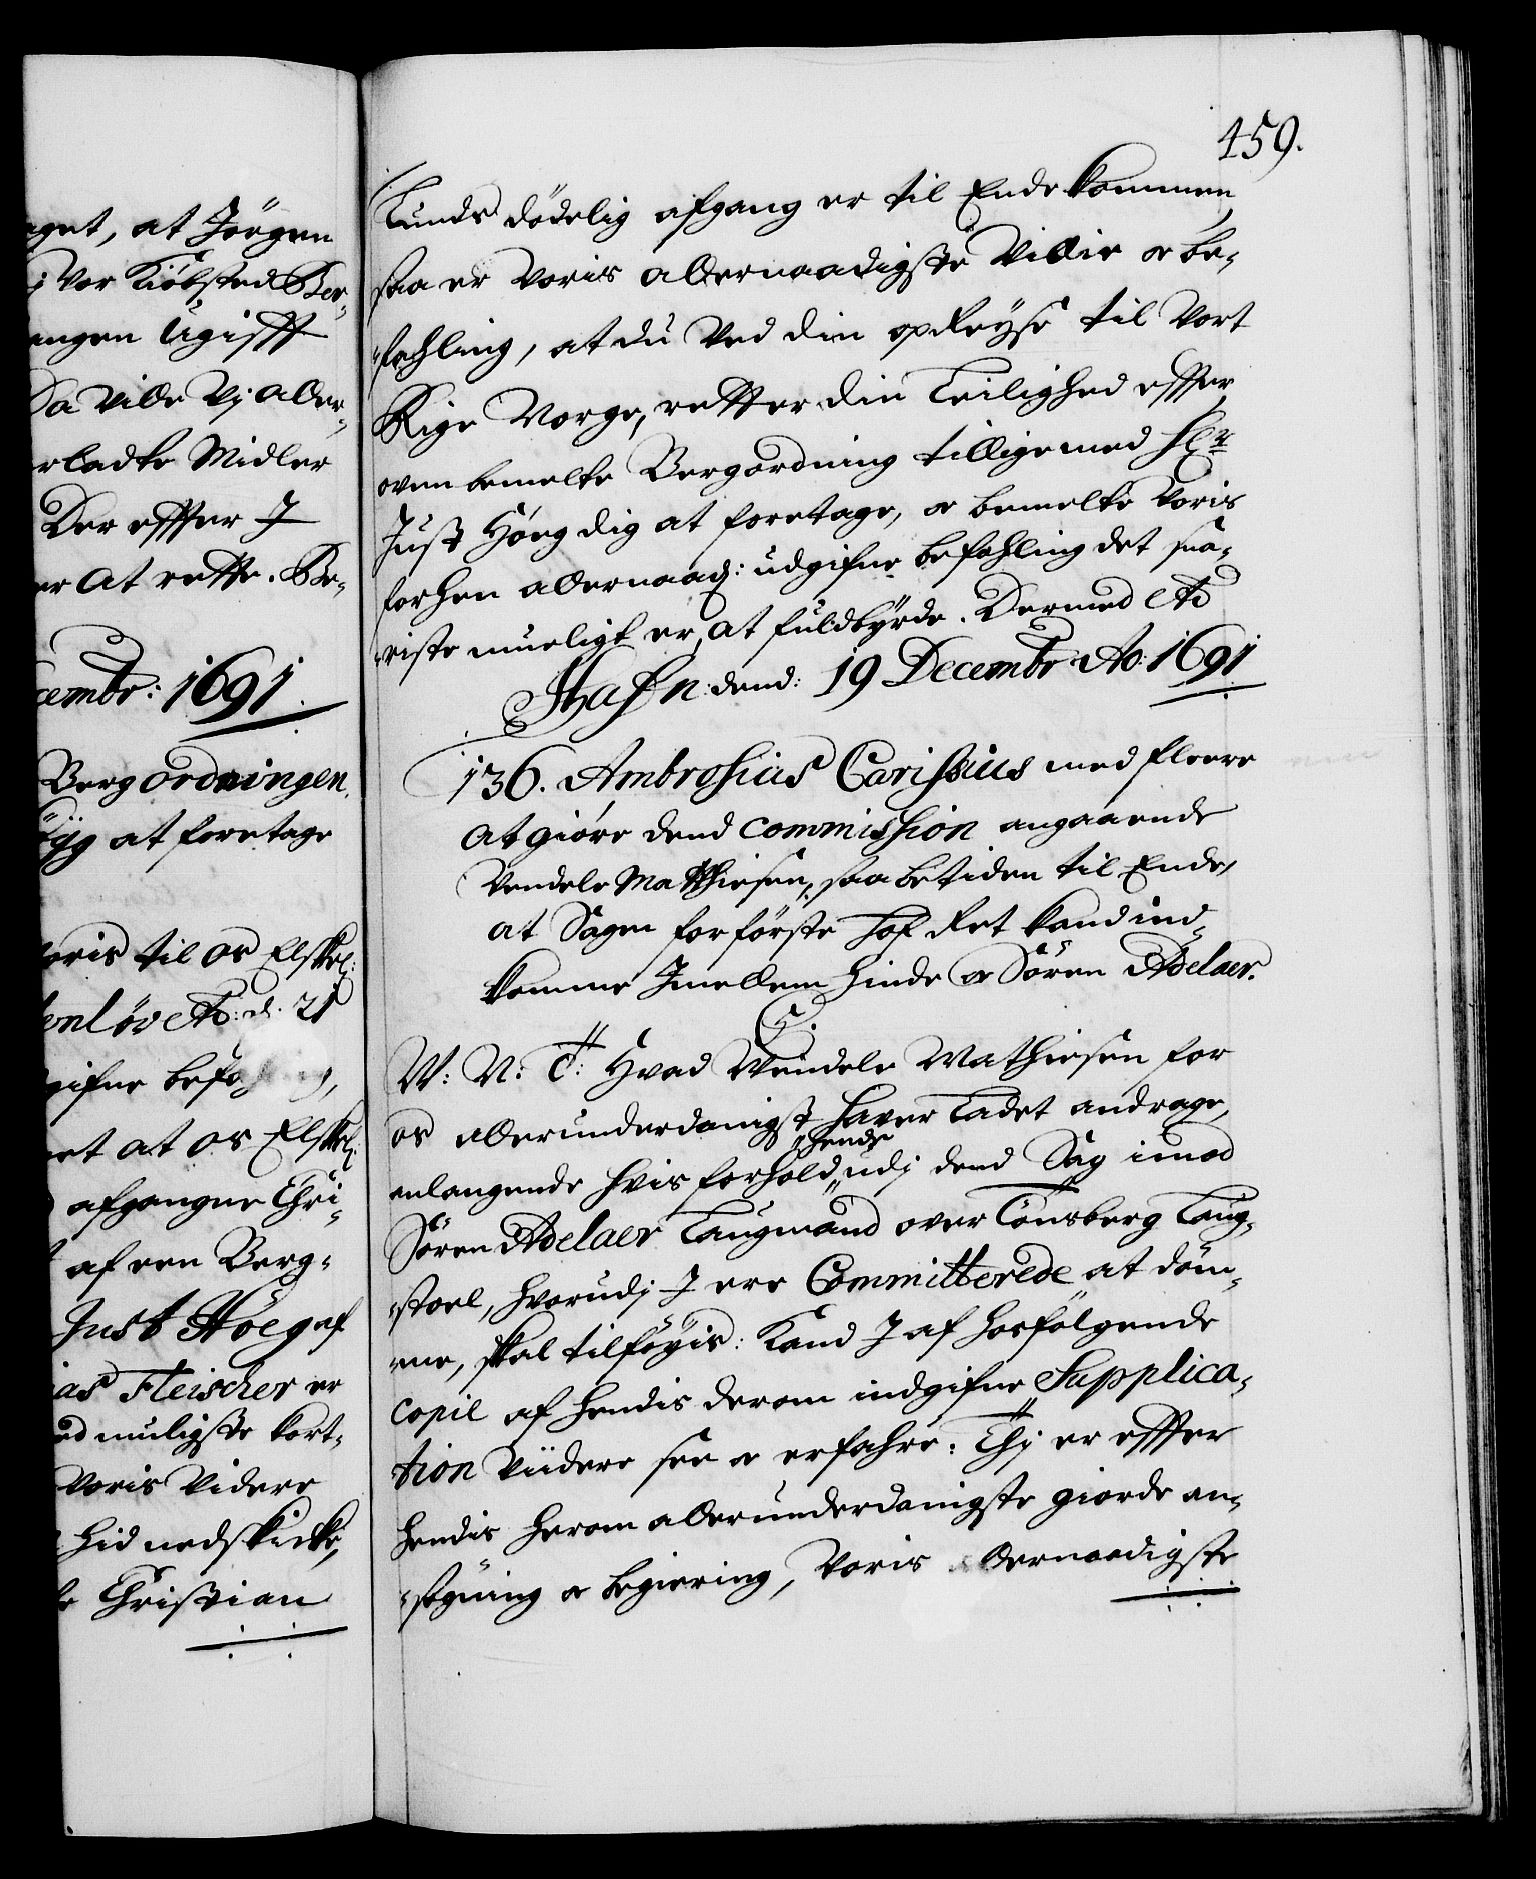 aget, at Jörgen
Vor Kiöbsted Ber-
angen Ugifft
Da ville Vj aller-
erladte Midler
Der effter I
er at rette. Be-
cembr: 1691
Berg ordningen
at foretage
Voris til os Elskel:
enløv etc: d. 21
gifne befahling,
et at os Elskel:
afgangne Chri-
af een Berg-
Just Höeg af
ias Fleischer er
ed muligste kort-
Voris Videre
hid nedskicke,
Christian
459.
Lunds dödelig afgang er til Ende kommen,
saa er Voris allernaadigste Villie og be-
fahling, at du ved din opreyse til Vort
Rige Norge, retter din Leilighed effter
ovenbemelte Bergordning tilligemed Hr
Just Höeg dig at foretage, og bemelte Voris
forhen allernaad: udgifne befahling det sna-
riste mueligt er, at fuldbyrde. Dermed etc
Hafn: dend: 19 Decembr Ao: 1691
136. Ambrosius Carissius med fleere
at giöre dend Commission angaaende
Vendele Matthiesen, saa betiden til Ende,
at Sagen for förste Hof Ret kand ind-
komme Imellem hinde og Sören Adelaer.
C5.
W: N: T: Hvad Wendele Mathiesen for
os allerunderdanigst haver ladet andrage,
anlangende hvis forhold hende udj dend Sag imod
Sören Adelaer Laugmand over Tönsberg Laug-
stoel, hvorudj I ere Committerede at döm-
me, skal tilföyis: Kand I af hosfölgende
Copie af hendis derom indgifne Supplica-
tion viidere see og erfahre: Thj er effter
hendis herom allerunderdanigste giorde an-
sögning og begiering, Voris allernaadigste